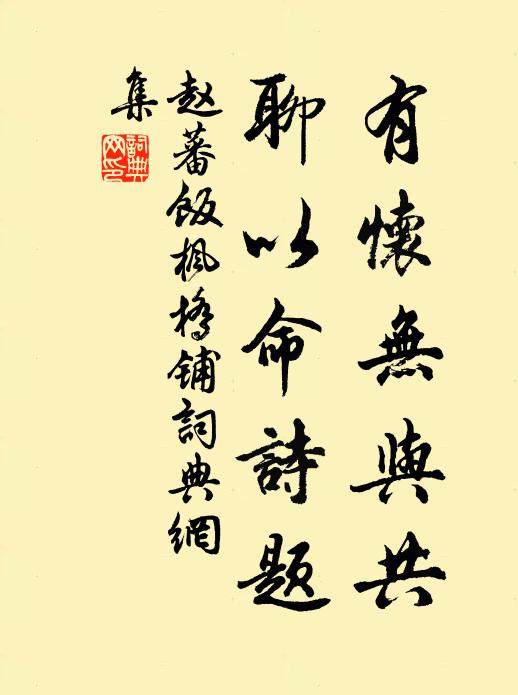 有懷無與共
聊以命詩題
赵蕃飯楓橋鋪詞典網
集
詞典
网印